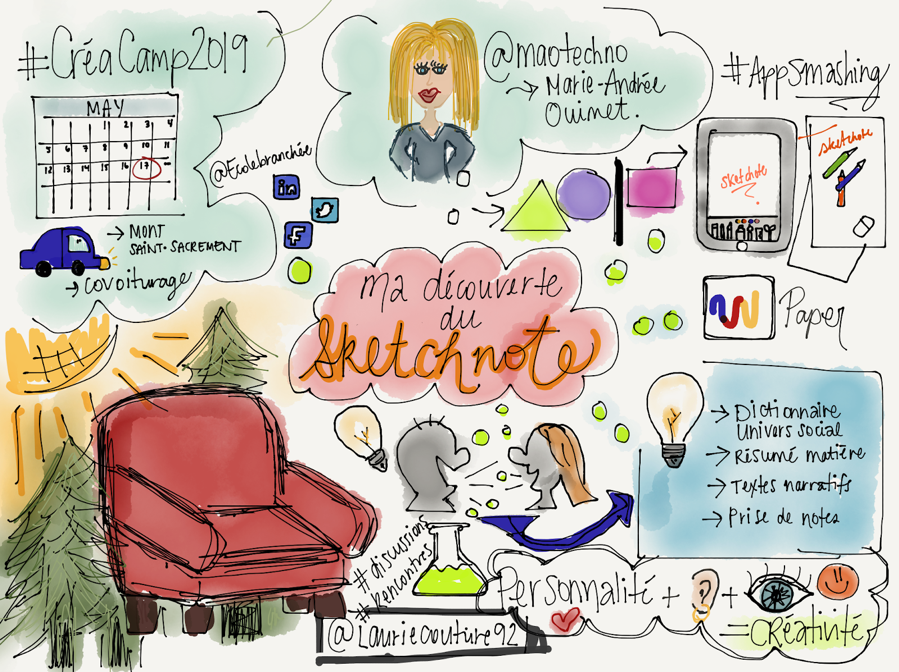 #CréaCamp2019
MAY
1 2 3 4
5 6 7 8 9 10 11
12 13 14 15 16 17
→ MONT
SAINT-SACREMENT
→ covoiturage
@Ecolebranchée
in
f
@maotechno
→ Marie-Andrée
Ouimet.
#AppSmashing
sketchnote
sketchnote
Paper
ma découverte
du
Sketchnote
→ Dictionnaire
Univers social
→ Résumé matière
→ Textes narratifs
→ Prise de notes
#discussions
#rencontres
@Lauriecouture92
Personnalité + +
= CRéativité